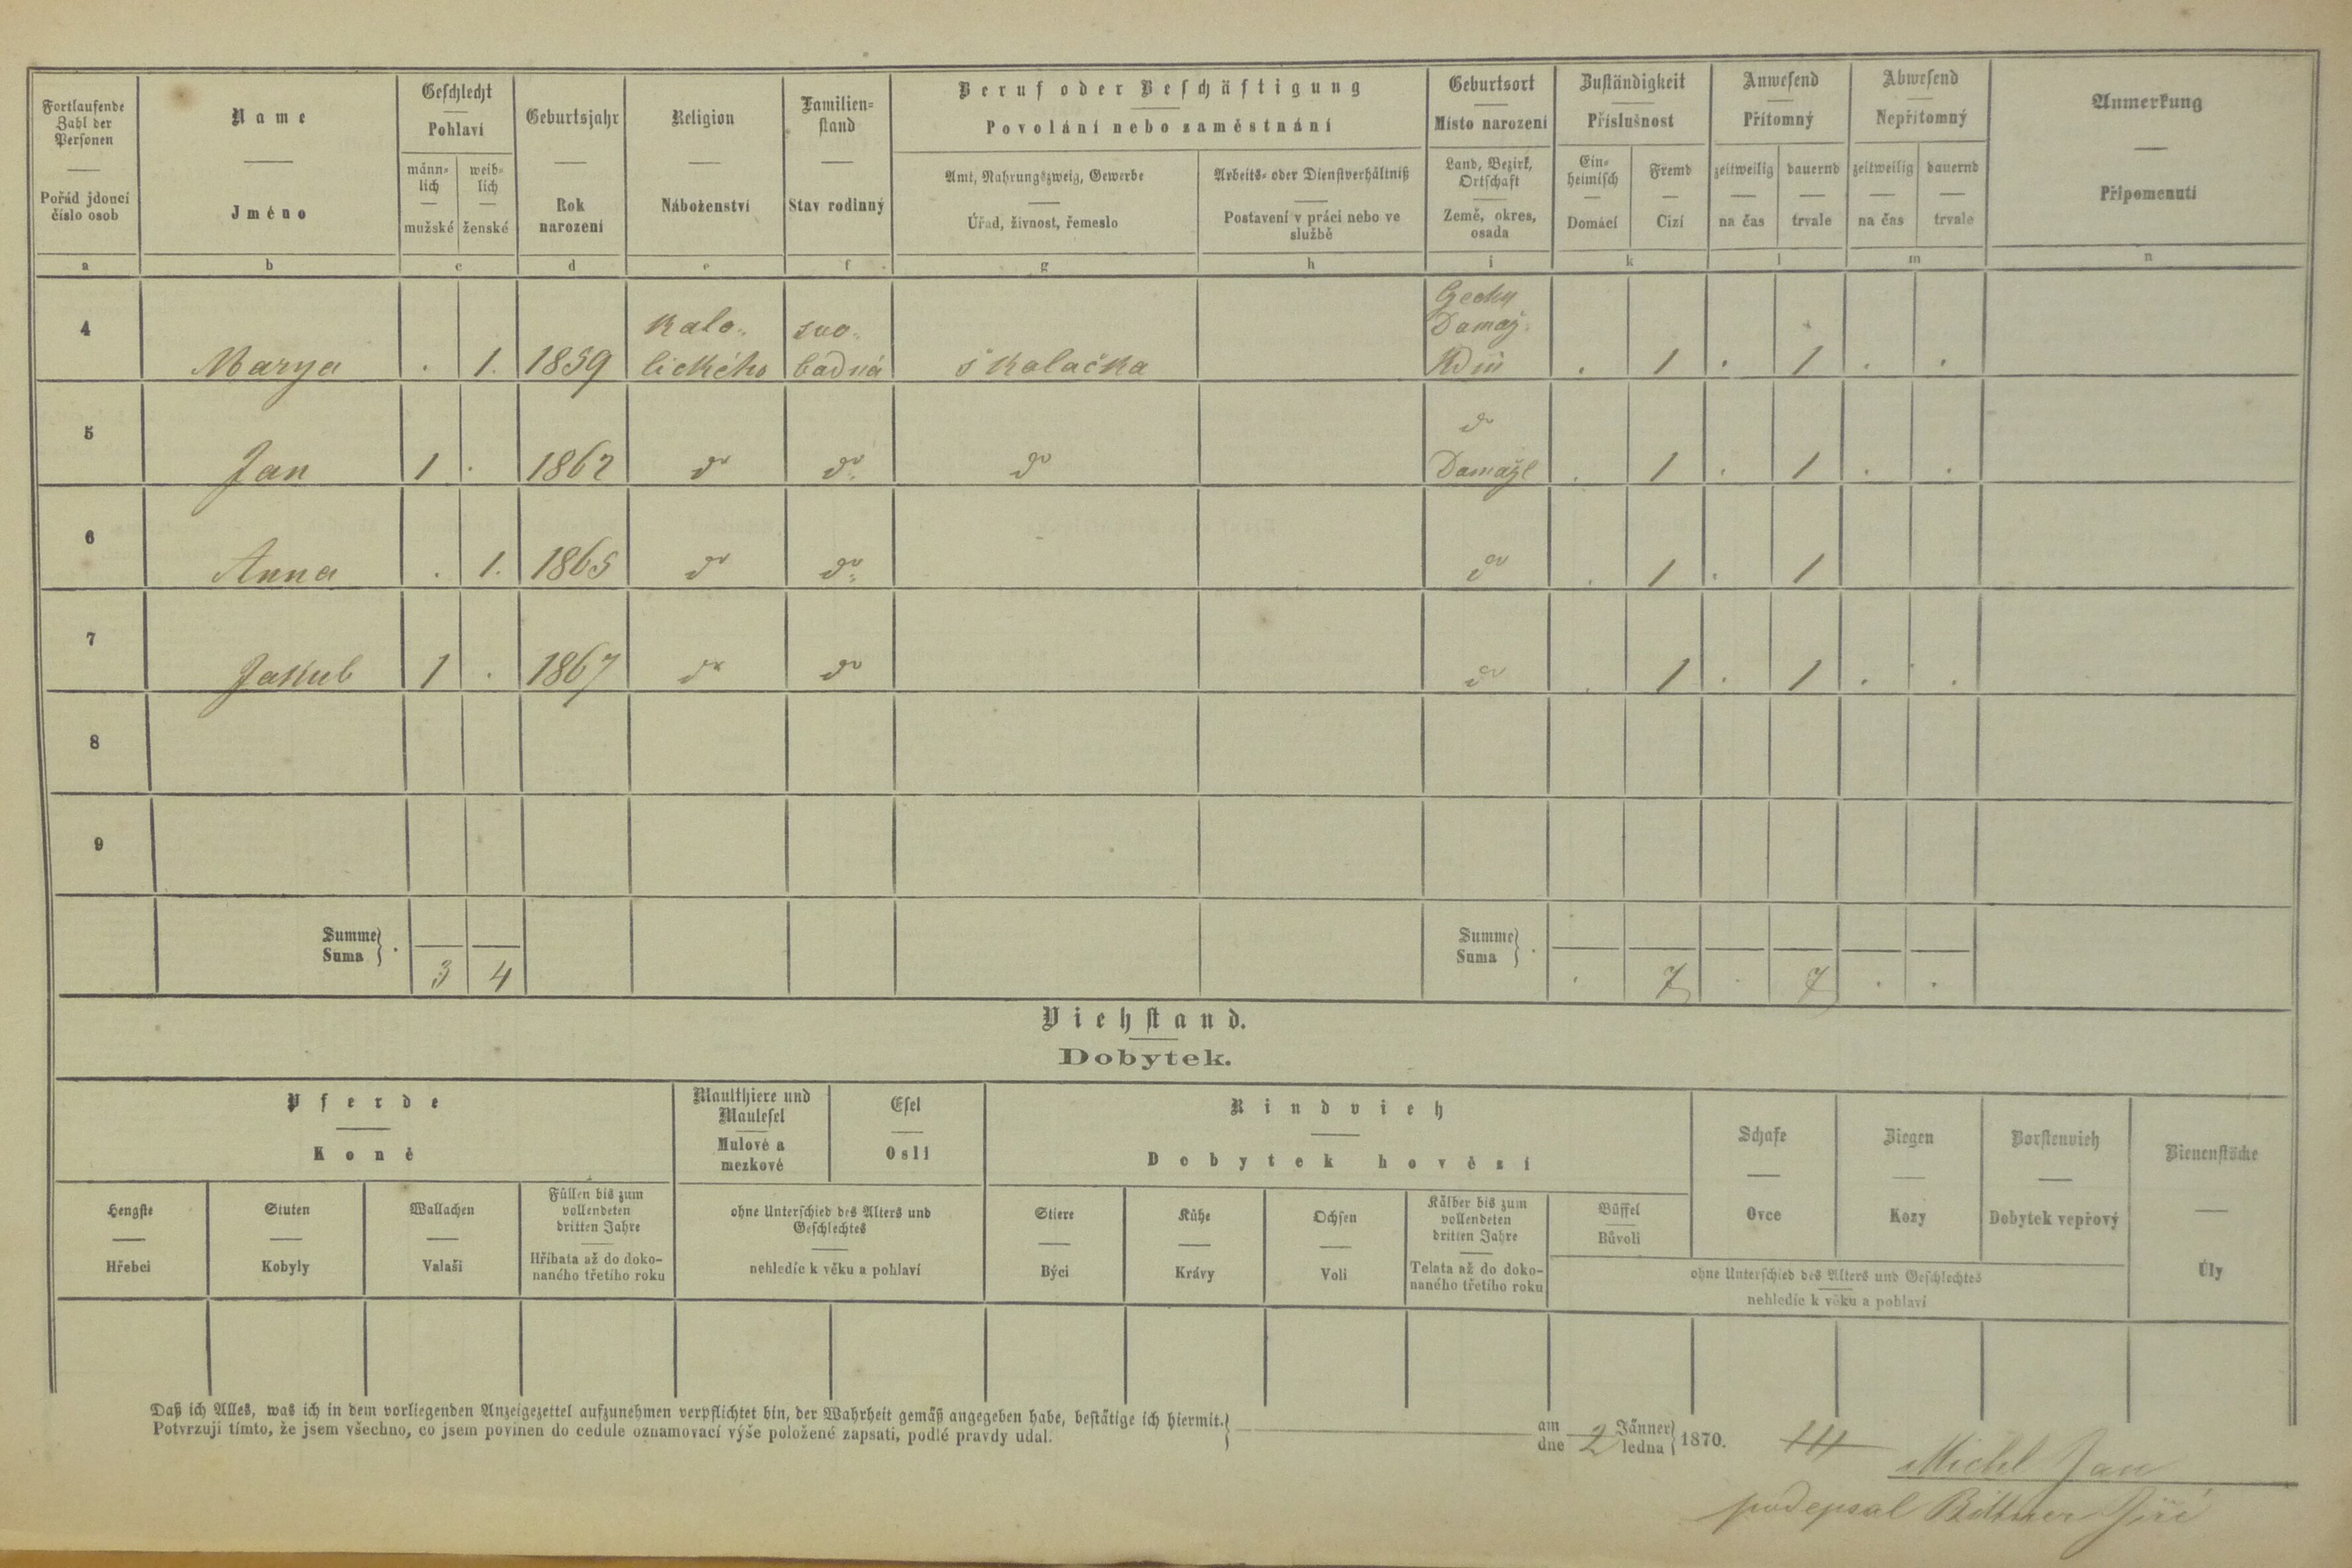 Fortlaufende Zahl der Personen
Pořád jdoucí číslo osob
Name
Jméno
Geschlecht
Pohlaví
männlich
mužské
weiblich
ženské
Geburtsjahr
Rok narození
Religion
Náboženství
Familienstand
Stav rodinný
Beruf oder Beschäftigung
Povolání nebo zaměstnání
Amt, Nahrungszweig, Gewerbe
Úřad, živnost, řemeslo
Arbeits- oder Dienstverhältniß
Postavení v práci nebo ve službě
Geburtsort
Místo narození
Land, Bezirk, Ortschaft
Země, okres, osada
Zuständigkeit
Příslušnost
Einheimisch
Domácí
Fremd
Cizí
Anwesend
Přítomný
zeitweilig
na čas
dauernd
trvale
Abwesend
Nepřítomný
zeitweilig
na čas
dauernd
trvale
Anmerkung
Připomenutí
a b c d e f g h i k l m n
4 Marya . 1. 1859 Kato- lického svo- bodná školačka Čechy Domaž. Kdiň . 1 . 1 . .
5 Jan 1 . 1862 do do do do Domažl . 1 . 1 . .
6 Anna . 1. 1865 do do do . 1 . 1
7 Jakub 1 . 1867 do do do . 1 . 1 . .
8
9
Summe
Suma
3 4
Summe
Suma
. 7 . 7 . .
Viehstand.
Dobytek.
Pferde
Koně
Hengste
Hřebci
Stuten
Kobyly
Wallachen
Valaši
Füllen bis zum vollendeten dritten Jahre
Hříbata až do dokonaného třetího roku
Maulthiere und Maulesel
Mulové a mezkové
Esel
Osli
ohne Unterschied des Alters und Geschlechtes
nehledíc k věku a pohlaví
Rindvieh
Dobytek hovězí
Stiere
Býci
Kühe
Krávy
Ochsen
Voli
Kälber bis zum vollendeten dritten Jahre
Telata až do dokonaného třetího roku
Büffel
Bůvoli
Schafe
Ovce
Ziegen
Kozy
Borstenvieh
Dobytek vepřový
ohne Unterschied des Alters und Geschlechtes
nehledíc k věku a pohlaví
Bienenstöcke
Úly
Daß ich Alles, was ich in dem vorliegenden Anzeigezettel aufzunehmen verpflichtet bin, der Wahrheit gemäß angegeben habe, bestätige ich hiermit.
Potvrzuji tímto, že jsem všechno, co jsem povinen do cedule oznamovací výše položené zapsati, podlé pravdy udal.
am
dne 2 Jänner
ledna 1870.
+++ Michl Jan
podepsal Bittner Jiří